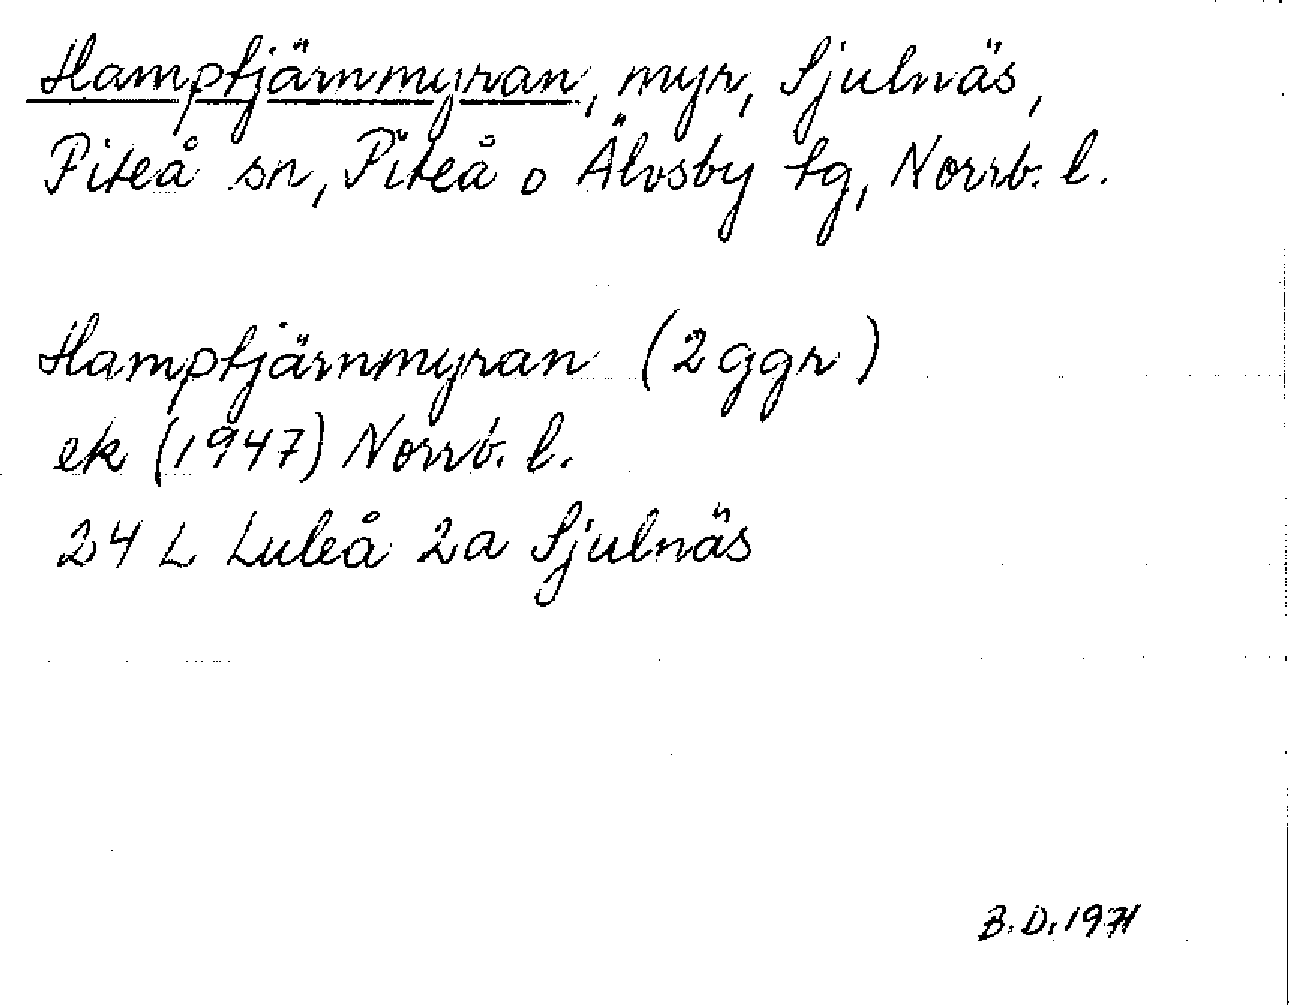 Hamptjärnmyran, myr, Sjulnäs,
Piteå sn, Piteå o Älvsby tg, Norrb. l.
Hamptjärnmyran (2 ggr)
ek (1947) Norrb. l.
24 L Luleå 2a Sjulnäs
B.D. 1971